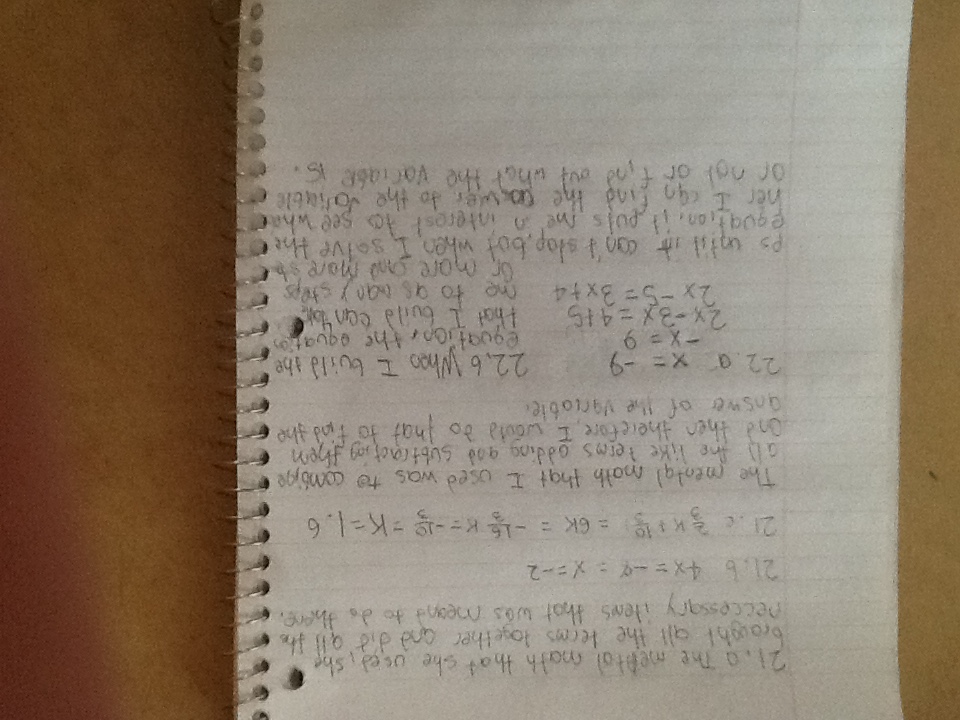 21.a The mental math that she used, she
brought all the terms together and did all the
neccessary items that was meant to do there.
21.b 4x = -8 = x = -2
21.c 2/3 K + 10/3 = 6K = -16/3 K = -10/3 = K = 1.6
The mental math that I used was to combine
all the like terms adding and subtracting them
and then therefore, I would do that to find the
answer of the variable.
22.a x = -9
-x = 9
2x-3x = 4+5
2x-5 = 3x+4
22.b When I build the
equation, the equation
that I build can take
me to as many steps
or more and more st
eps until it can't stop, but when I solve the
equation, it puts me n interest to see whe
her I can find the answer to the variable
or not or find out what the variable is.